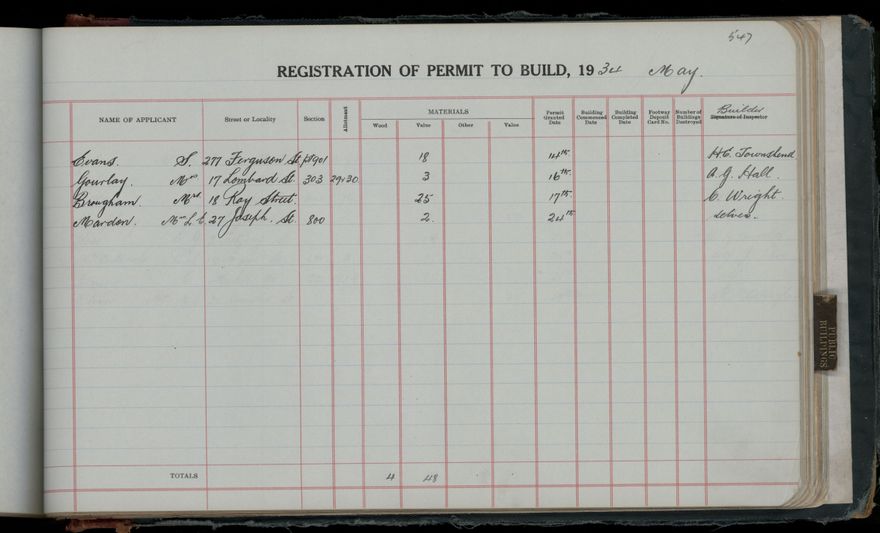 547
REGISTRATION OF PERMIT TO BUILD, 1934 May.
NAME OF APPLICANT Street or Locality Section Allotment MATERIALS Permit Granted Date Building Commenced Date Building Completed Date Footway Deposit Card No. Number of Buildings Destroyed Builder Signature of Inspector
Wood Value Other Value
Evans. S. 277 Ferguson St. 18 14th. H.E. Townshend
Gourlay. Mrs 17 Lombard St. 303 29.30 3 16th. A. G. Hall.
Brougham. Mrs 18 Ray Street. 25 17th. C. Wright.
Mardon. Mrs L. E. 27 Joseph. St. 800 2. 24th
TOTALS 4 48
PUBLIC BUILDINGS